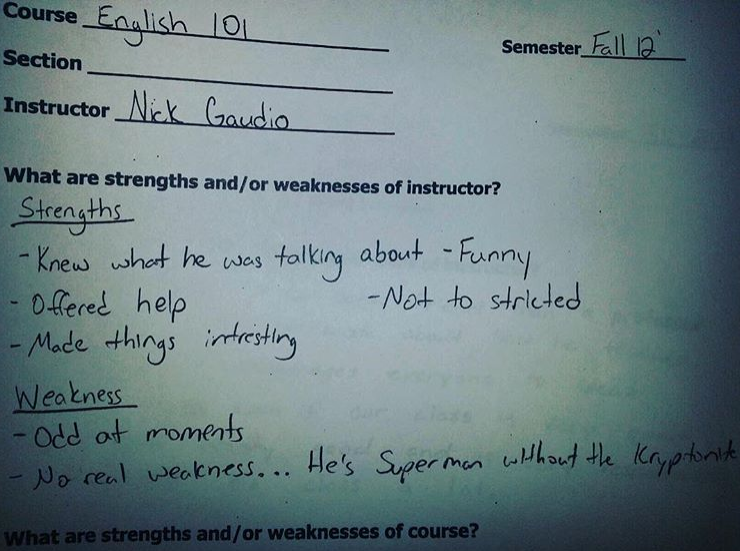 Course English 101
Semester Fall 12'
Section
Instructor Nick Gaudio
What are strengths and/or weaknesses of instructor?
Strengths
- Knew what he was talking about - Funny
- Offered help - Not to stricted
- Made things intresting
Weakness
- Odd at moments
- No real weakness... He's Superman without the Kryptonite
What are strengths and/or weaknesses of course?